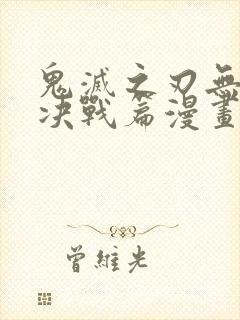 鬼滅之刃無
决戰篇漫畫
曾維光